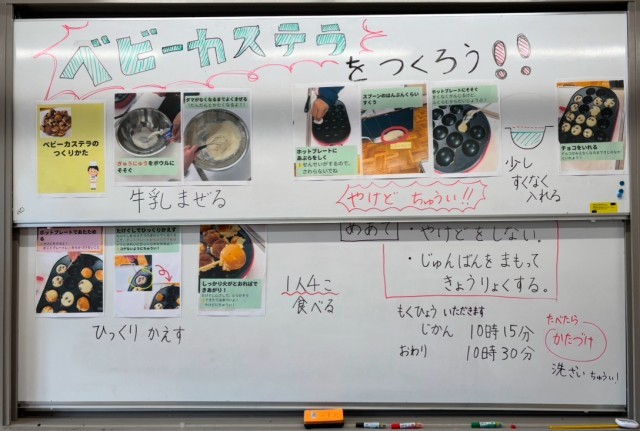 ベビーカステラをつくろう!!
ベビーカステラの
つくりかた
ぎゅうにゅうをボウルに
そそぐ
ダマがなくなるまでよくまぜる
ホットプレートに
あぶらをしく
せんせいがするので、
さわらないでね
スプーンのはんぶんくらい
すくう
ホットプレートにそそぐ
チョコをいれる
牛乳まぜる
やけど ちゅうい!!
少し
すくなく
入れる
ホットプレートであたためる
たけぐしでひっくりかえす
しっかり火がとおれば
できあがり!
ひっくり かえす
1人4こ
食べる
めあて
・やけどをしない。
・じゅんばんをまもって
きょうりょくする。
もくひょう いただきます
じかん 10時15分
おわり 10時30分
たべたら
かたづけ
洗ざい ちゅうい!